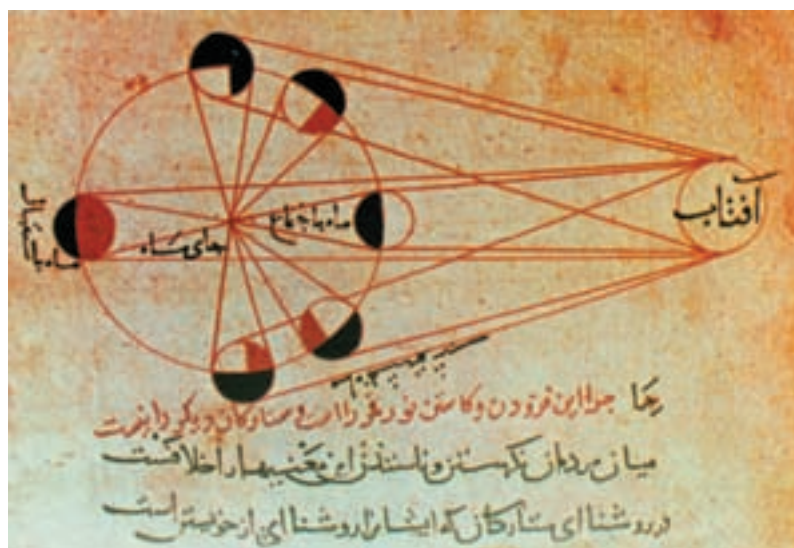 آفتاب
ماه باجتماع
ماه باستقبال
چرا این فزودن و کاستن نور قمر را است و ستارگان دیگر را نیست
میان مردمان این معنی بسیار اختلافست
در روشنا ای ستارگان که ایشانرا روشنا ای از خویشتن است